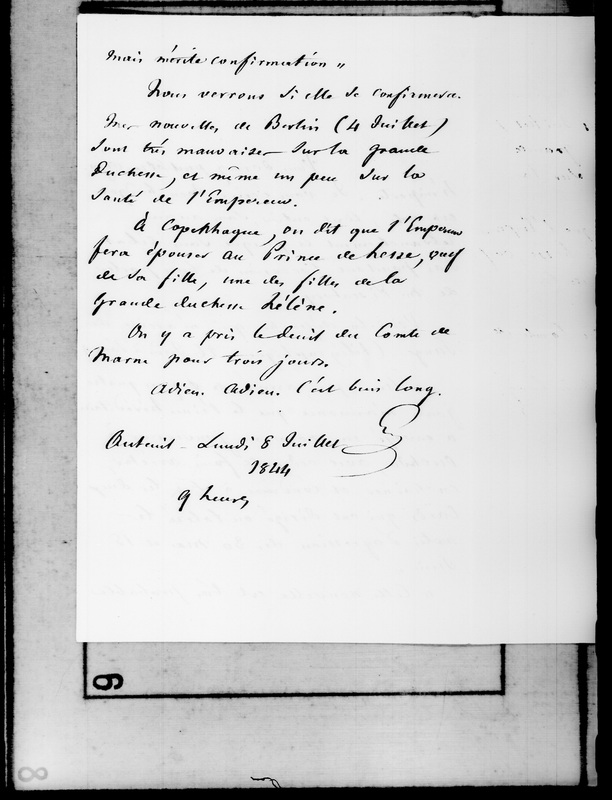 mais mérite confirmation "
Nous verrons si elle se confirmera.
Mes nouvelles de Berlin (4 Juillet)
sont très mauvaises sur la grande
Duchesse, et même un peu sur la
santé de l'Empereur.
À Copenhague, on dit que l'Empereur
fera épouser au Prince de hesse, veuf
de sa fille, une des filles de la
grande duchesse hélène.
On y a pris le deuil du Comte de
Marne pour trois jours.
Adieu. Adieu. C'est bien long.
Auteuil - Lundi 8 Juillet
1844
9 heures
6
8